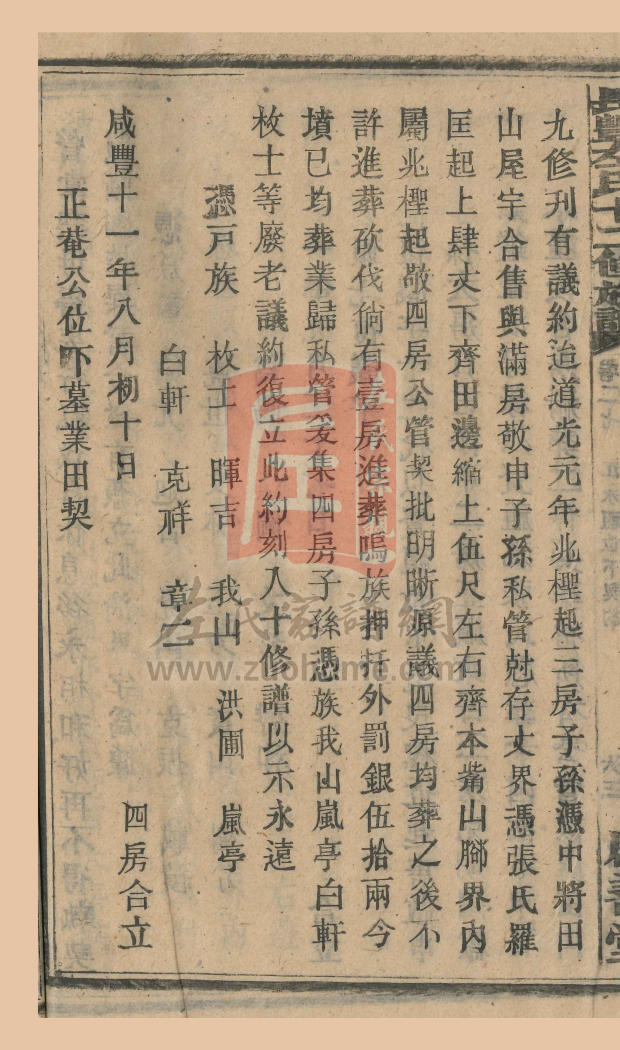 九修刊有議約迨道光元年兆榸起三房子孫憑中將田
山屋宇合售與滿房敬申子孫私管兙存丈界憑張氏羅
匡起上肆丈下齊田邊縮上伍尺左右齊本嘴山腳界內
屬兆榸起敬四房公管契批明晰原議四房均葬之後不
許進葬砍伐倘有壹房進葬鳴族押扦外罰銀伍拾兩今
墳已均葬業歸私管爰集四房子孫憑族我山嵐亭白軒
枚士等廢老議約復立此約刻入十修譜以示永遠
憑戶族 枚士 暉吉 我山 洪圃 嵐亭
白軒 克祥 章二
四房合立
咸豐十一年八月初十日
正菴公位下墓業田契
左氏家譜網
www.zuohome.com